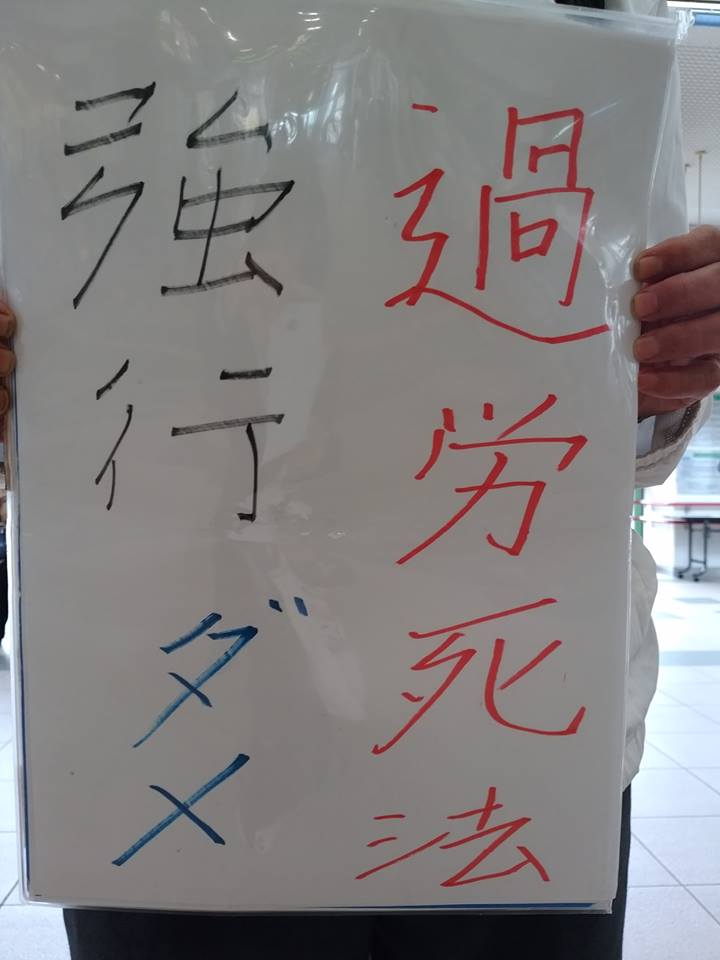 過労死法
強行ダメ